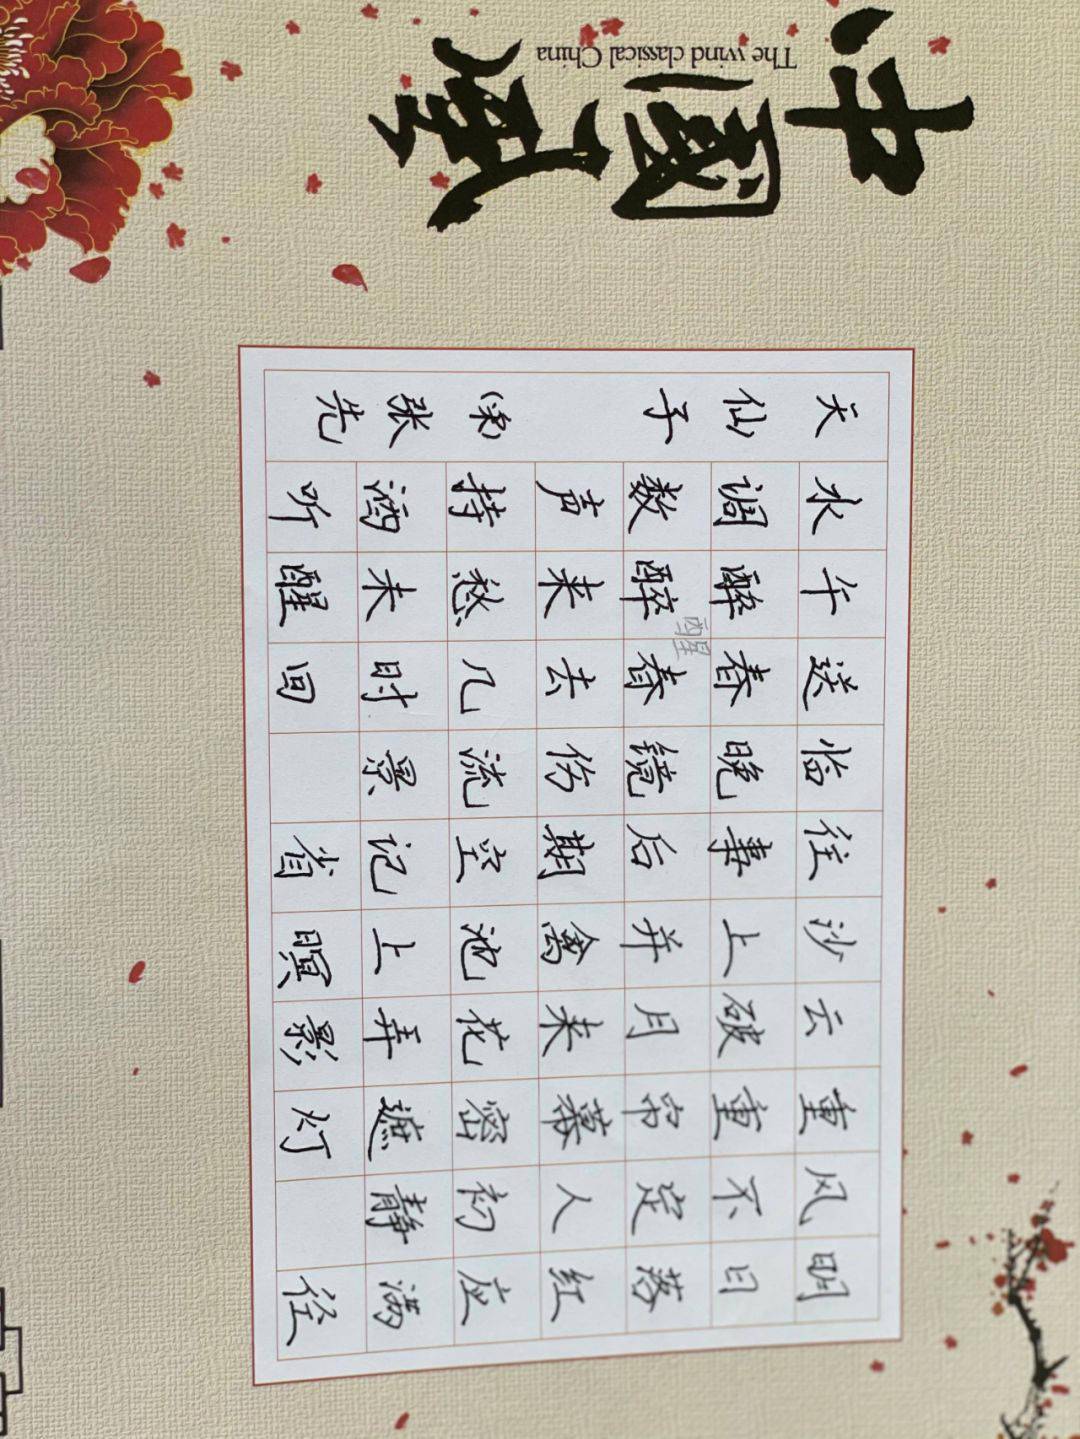 中國風
The wind classical China
天仙子 (宋)张先
水调数声持酒听
午醉醉来愁未醒
醒
送春春去几时回
临晚镜伤流景
往事后期空记省
沙上并禽池上暝
云破月来花弄影
重重帘幕密遮灯
风不定人初静
明日落红应满径